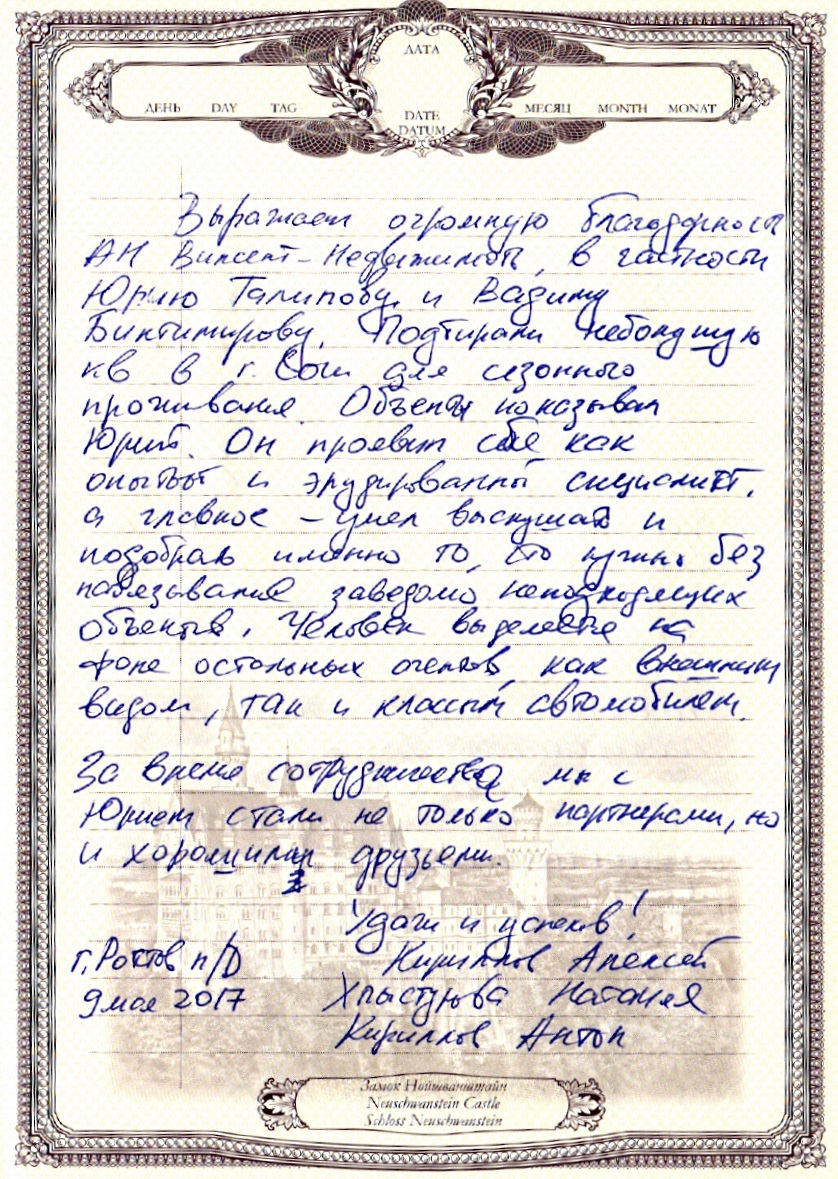 ДАТА
ДЕНЬ DAY TAG
МЕСЯЦ MONTH MONAT
DATE
DATUM
Выражаем огромную благодарность
АН Винсент-Недвижимость, в частности
Юрию Талипову и Вадиму
Биктимирову. Подбирали небольшую
кв в г. Сочи для сезонного
проживания. Объекты показывал
Юрий. Он проявил себя как
опытный и эрудированный специалист,
а главное – умел выслушать и
подобрать именно то, что нужно без
навязывания заведомо неподходящих
объектов. Человек выделяется на
фоне остальных агентов, как внешним
видом, так и классным автомобилем.
За время сотрудничества мы с
Юрием стали не только партнерами, но
и хорошими друзьями.
Удачи и успехов!
г. Ростов н/Д
Кириллов Алексей
9 мая 2017
Хлыстунова Наталья
Кириллов Антон
Замок Нойшванштайн
Neuschwanstein Castle
Schloss Neuschwanstein